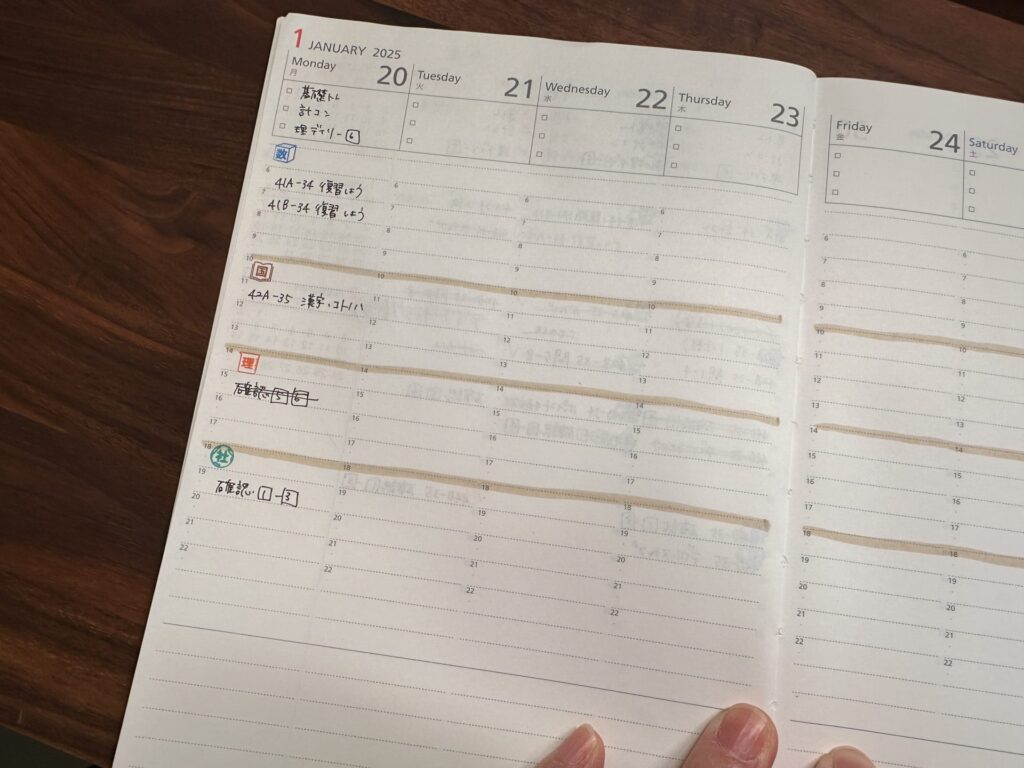 1 JANUARY 2025
Monday 20
月
□ 基礎トレ
□ 計コン
□ 理デイリー 6
数
6
41A-34 復習しよう
7
41B-34 復習しよう
8
9
10
国
11
42A-35 漢字、コトノハ
12
13
14
理
15
確認 5 6
16
17
18
社
19
確認 1-3
20
21
22
Tuesday 21
火
□
□
□
6
7
8
9
10
11
12
13
14
15
16
17
18
19
20
21
22
Wednesday 22
水
□
□
□
6
7
8
9
10
11
12
13
14
15
16
17
18
19
20
21
22
Thursday 23
木
□
□
□
6
7
8
9
10
11
12
13
14
15
16
17
18
19
20
21
22
Friday 24
金
□
□
□
6
7
8
9
10
11
12
13
14
15
16
17
18
19
20
21
22
Saturday
土
□
□
□
6
7
8
9
10
11
12
13
14
15
16
17
18
19
20
21
22